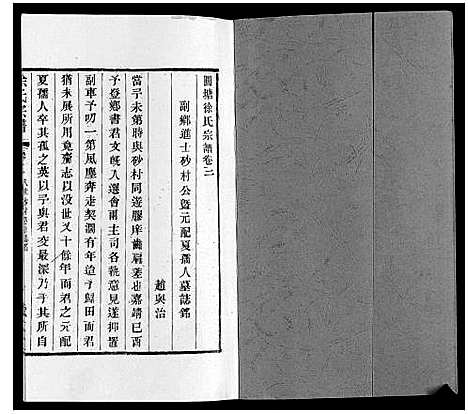 圓塘徐氏宗譜卷二
副鄉進士砂村公曁元配夏孺人墓誌銘
趙與治
當予未第時與砂村同遊膠庠齒肩差也嘉靖己酉
予登鄉書君文旣入選會兩主司各執意見遂抑置
副車予叨一第風塵奔走契濶有年迨予歸田而君
猶未展所用竟齎志以没世又十餘年而君之元配
夏孺人卒其孤之英以予與君交最深乃手其所自